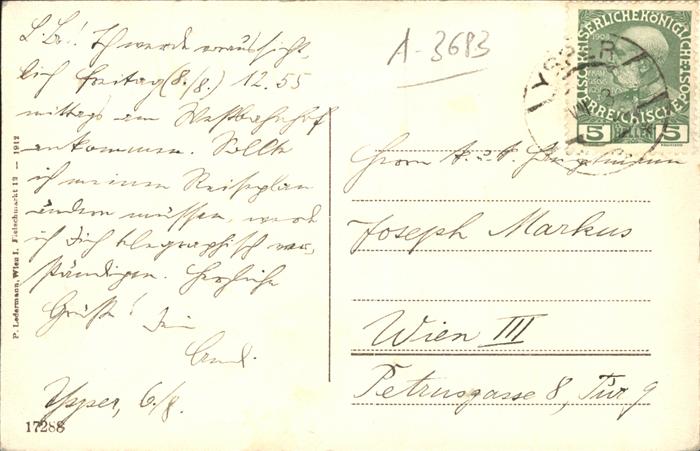 L. Br.! Ich werde voraussicht-
lich Freitag (8./8.) 12.55
mittags am Westbahnhof
ankommen. Sollte
ich meinen Reiseplan
ändern müssen, werde
ich Dich telegraphisch ver-
ständigen. Herzliche
Grüße! Dein
Ysper, 6./8.
17288
P. Ledermann, Wien I. Fleischmarkt 12 — 1912
A-3683
YSPER
KAISERLICHE KÖNIGLICHE
ÖSTERREICHISCHE POST
1908
5 HELLER 5
Herrn
Joseph Markus
Wien III
Petrusgasse 8, Tür 9